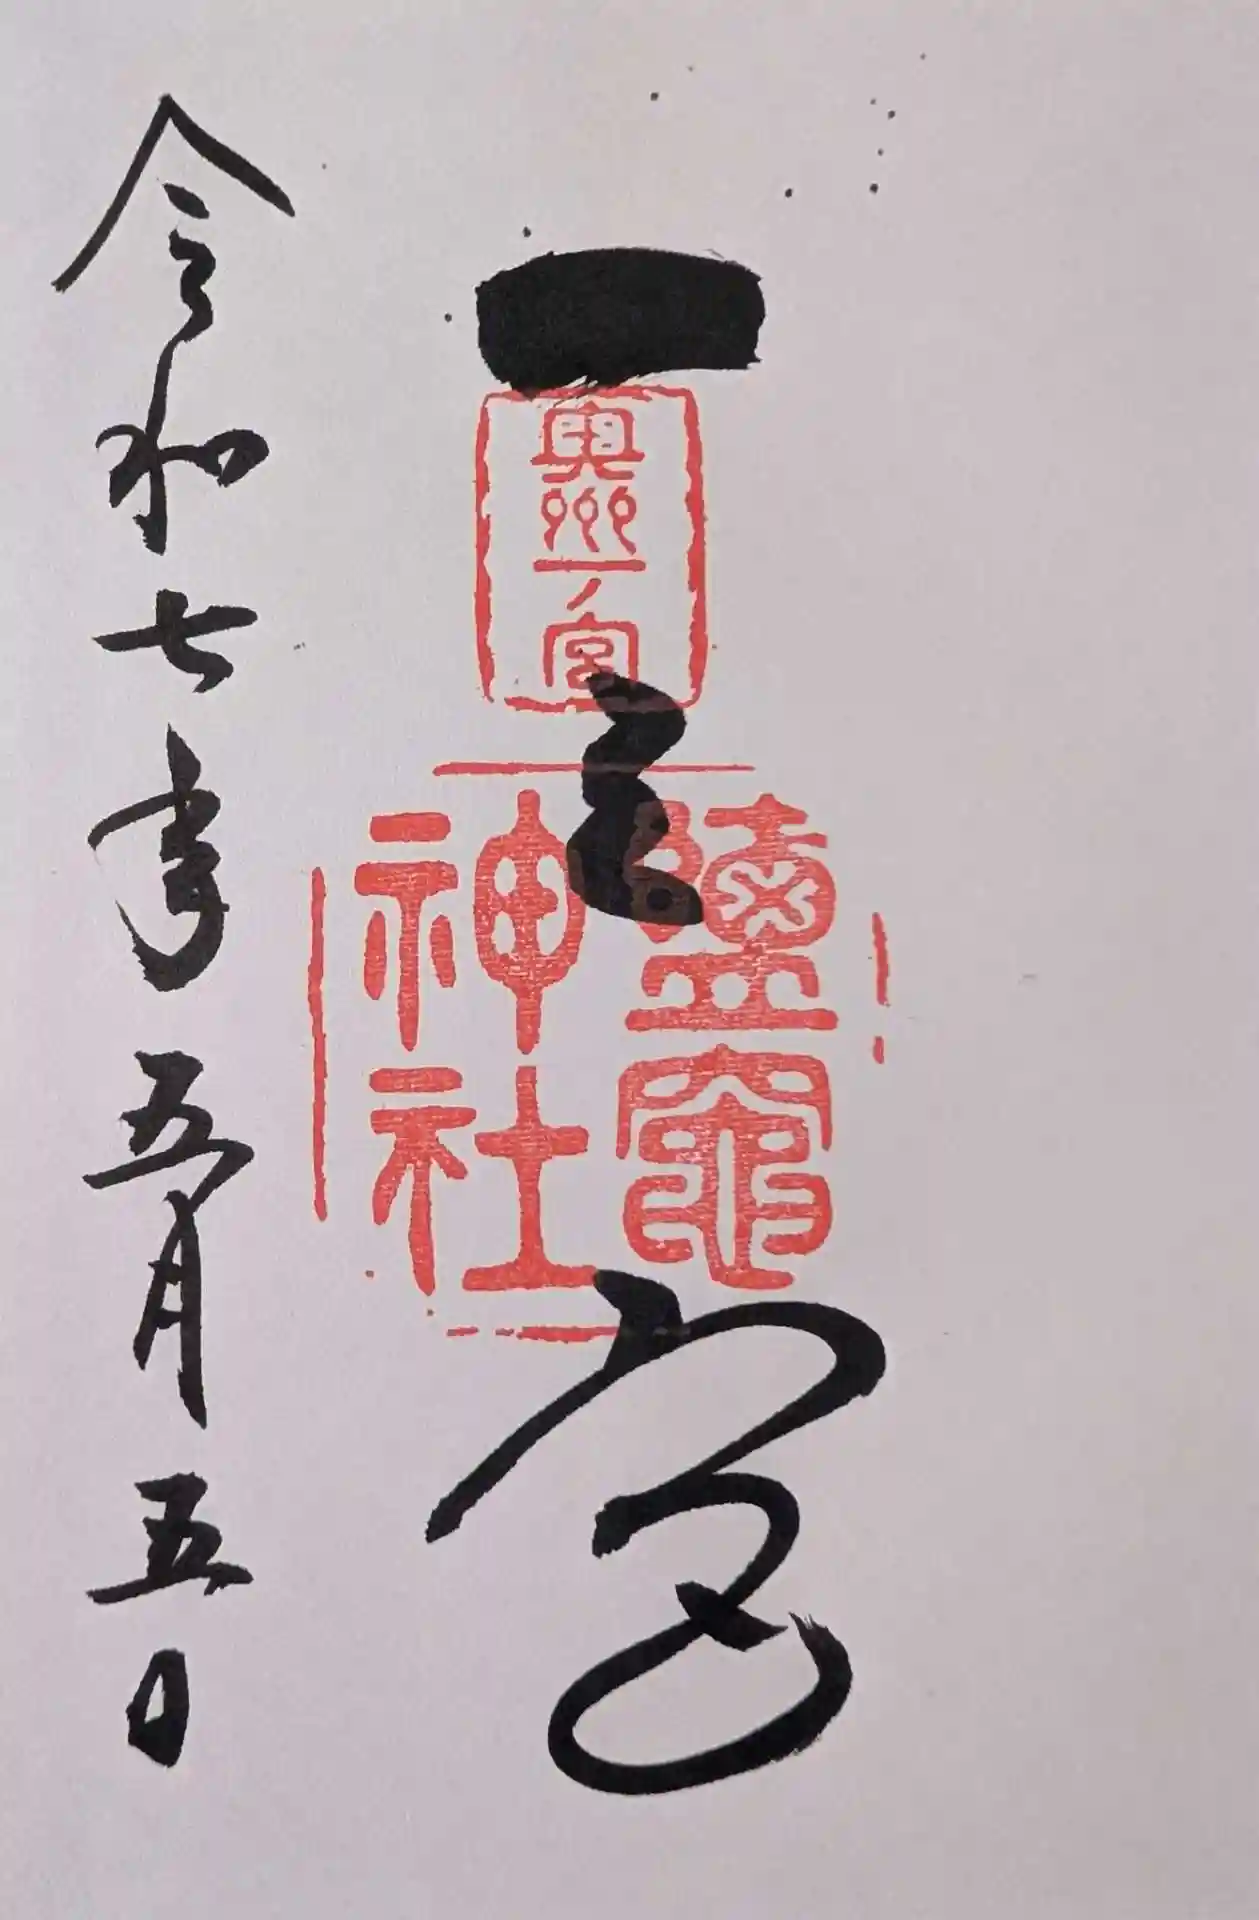 一之宮
奥州一ノ宮
鹽竈神社
令和七年五月五日